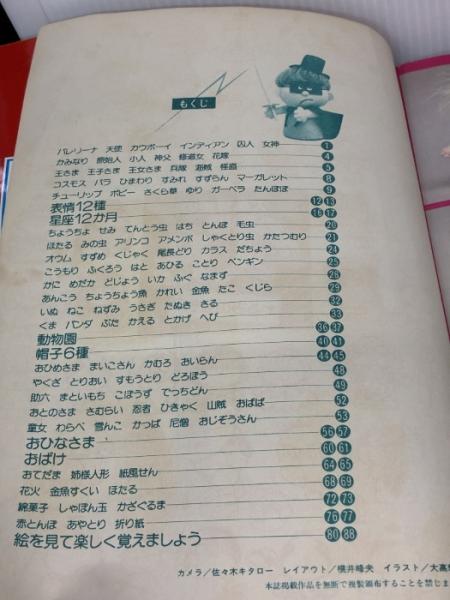 もくじ
バレリーナ 天使 カウボーイ インディアン 囚人 女神 1
かみなり 原始人 小人 神父 修道女 花嫁 4
王さま 王子さま 王女さま 兵隊 海賊 怪盗 5
コスモス バラ ひまわり すみれ すずらん マーガレット 8
チューリップ ポピー さくら草 ゆり ガーベラ たんぽぽ 9
表情12種 12 13
星座12か月 16 17
ちょうちょ せみ てんとう虫 はち とんぼ 毛虫 20
ほたる みの虫 アリンコ アメンボ しゃくとり虫 かたつむり 21
オウム すずめ くじゃく 尾長どり カラス だちょう 24
こうもり ふくろう はと あひる ことり ペンギン 25
かに めだか どじょう いか ふぐ なまず 28
あんこう ちょうちょう魚 かれい 金魚 たこ くじら 29
いぬ ねこ ねずみ うさぎ たぬき さる 32
くま パンダ ぶた かえる とかげ へび 33
動物園 36 37
帽子6種 40 41
おひめさま まいこさん かむろ おいらん 44 45
やくざ とりおい すもうとり どろぼう 48
助六 まといもち こぼうず でっちどん 49
おとのさま さむらい 忍者 ひきゃく 山賊 おばば 52
童女 わらべ 雪んこ かっぱ 尼僧 おじぞうさん 53
おひなさま 56 57
おばけ 60 61
おてだま 姉様人形 紙風せん 64 65
花火 金魚すくい ほたる 68 69
綿菓子 しゃぼん玉 かざぐるま 72 73
赤とんぼ あやとり 折り紙 76 77
絵を見て楽しく覚えましょう 80 88
カメラ/佐々木キタロー レイアウト/横井峰夫 イラスト/大高
本誌掲載作品を無断で複製頒布することを禁じま